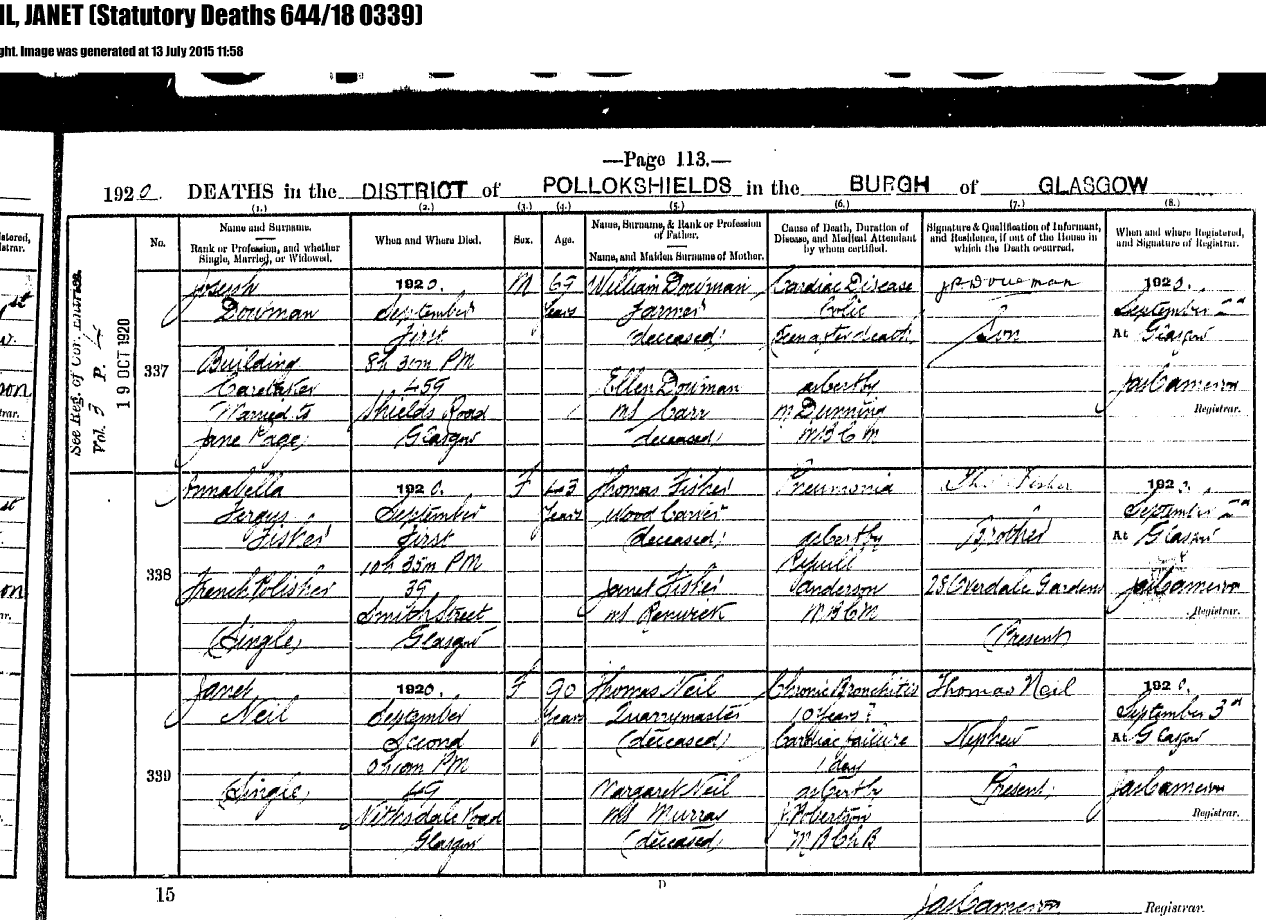 IL, JANET (Statutory Deaths 644/18 0339)
ght. Image was generated at 13 July 2015 11:58
—Page 113.—
1920. DEATHS in the DISTRICT of POLLOKSHIELDS in the BURGH of GLASGOW
(1.) (2.) (3.) (4.) (5.) (6.) (7.) (8.)
No.
Name and Surname.
Rank or Profession, and whether
Single, Married, or Widowed.
When and Where Died.
Sex.
Age.
Name, Surname, & Rank or Profession
of Father.
Name, and Maiden Surname of Mother.
Cause of Death, Duration of
Disease, and Medical Attendant
by whom certified.
Signature & Qualification of Informant,
and Residence, if out of the House in
which the Death occurred.
When and where Registered,
and Signature of Registrar.
See Reg. of Cor. Entries.
Vol. 3 P. 4
19 OCT 1920
337
Joseph
Dowman
Building
Caretaker
Married to
Jane Page
1920.
September
First
8h 30m PM
459
Shields Road
Glasgow
M
69
Years
William Dowman
Farmer
(deceased)
Ellen Dowman
ms Carr
(deceased)
Cardiac Disease
Colic
(Seen after death)
as cert by
M Dunning
M B C M
Son
1920.
September 2nd
At Glasgow
Jas Cameron
Registrar.
338
Annabella
Fergus
Fisher
French Polisher
(Single)
1920.
September
First
10h 35m PM
39
Smith Street
Glasgow
F
43
Years
Thomas Fisher
Wood Carver
(deceased)
Janet Fisher
ms Renwick
Pneumonia
as cert by
Anderson
M B C M
Thos Fisher
Brother
28 Overdale Gardens
(Present)
1920.
September 2nd
At Glasgow
Jas Cameron
Registrar.
339
Janet
Neil
(Single)
1920.
September
Second
49
Nithsdale Road
Glasgow
F
90
Years
Thomas Neil
Quarrymaster
(deceased)
Margaret Neil
ms Murray
(deceased)
Chronic Bronchitis
10 Years?
Cardiac failure
1 day
as cert by
J. Robertson
M B Ch B
Thomas Neil
Nephew
Present
1920.
September 3rd
At Glasgow
Jas Cameron
Registrar.
15
D
Jas Cameron Registrar.